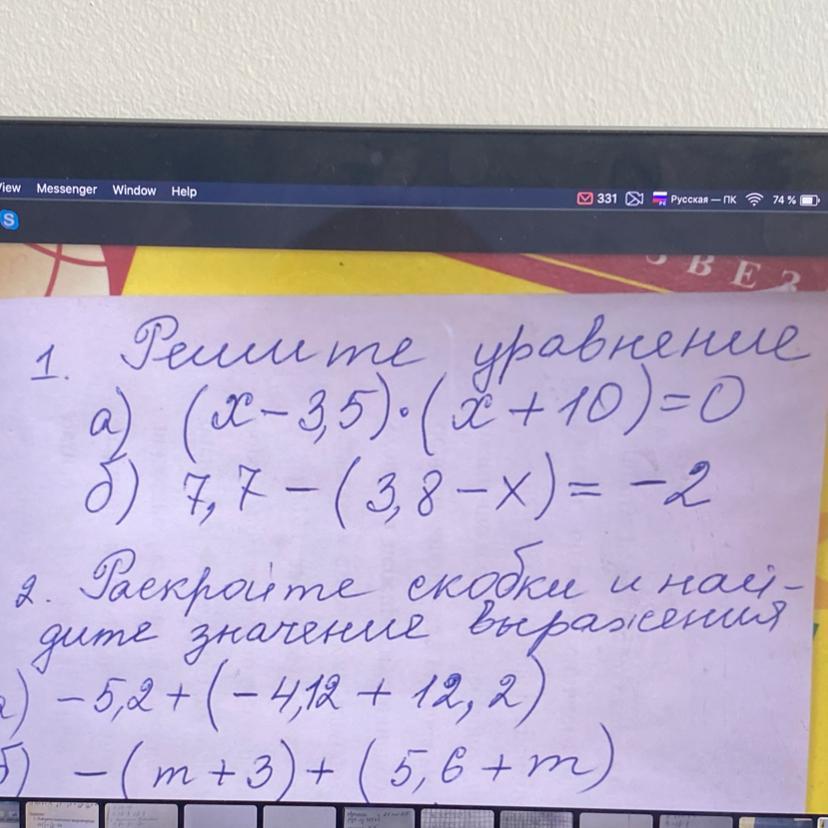 View Messenger Window Help
331 Русская — ПК 74 %
S
З В Е З
1. Решите уравнение
а) (x – 3,5) · (x + 10) = 0
б) 7,7 – (3,8 – x) = –2
2. Раскройте скобки и най-
дите значение выражения
а) –5,2 + (–4,12 + 12,2)
б) –(m + 3) + (5,6 + m)